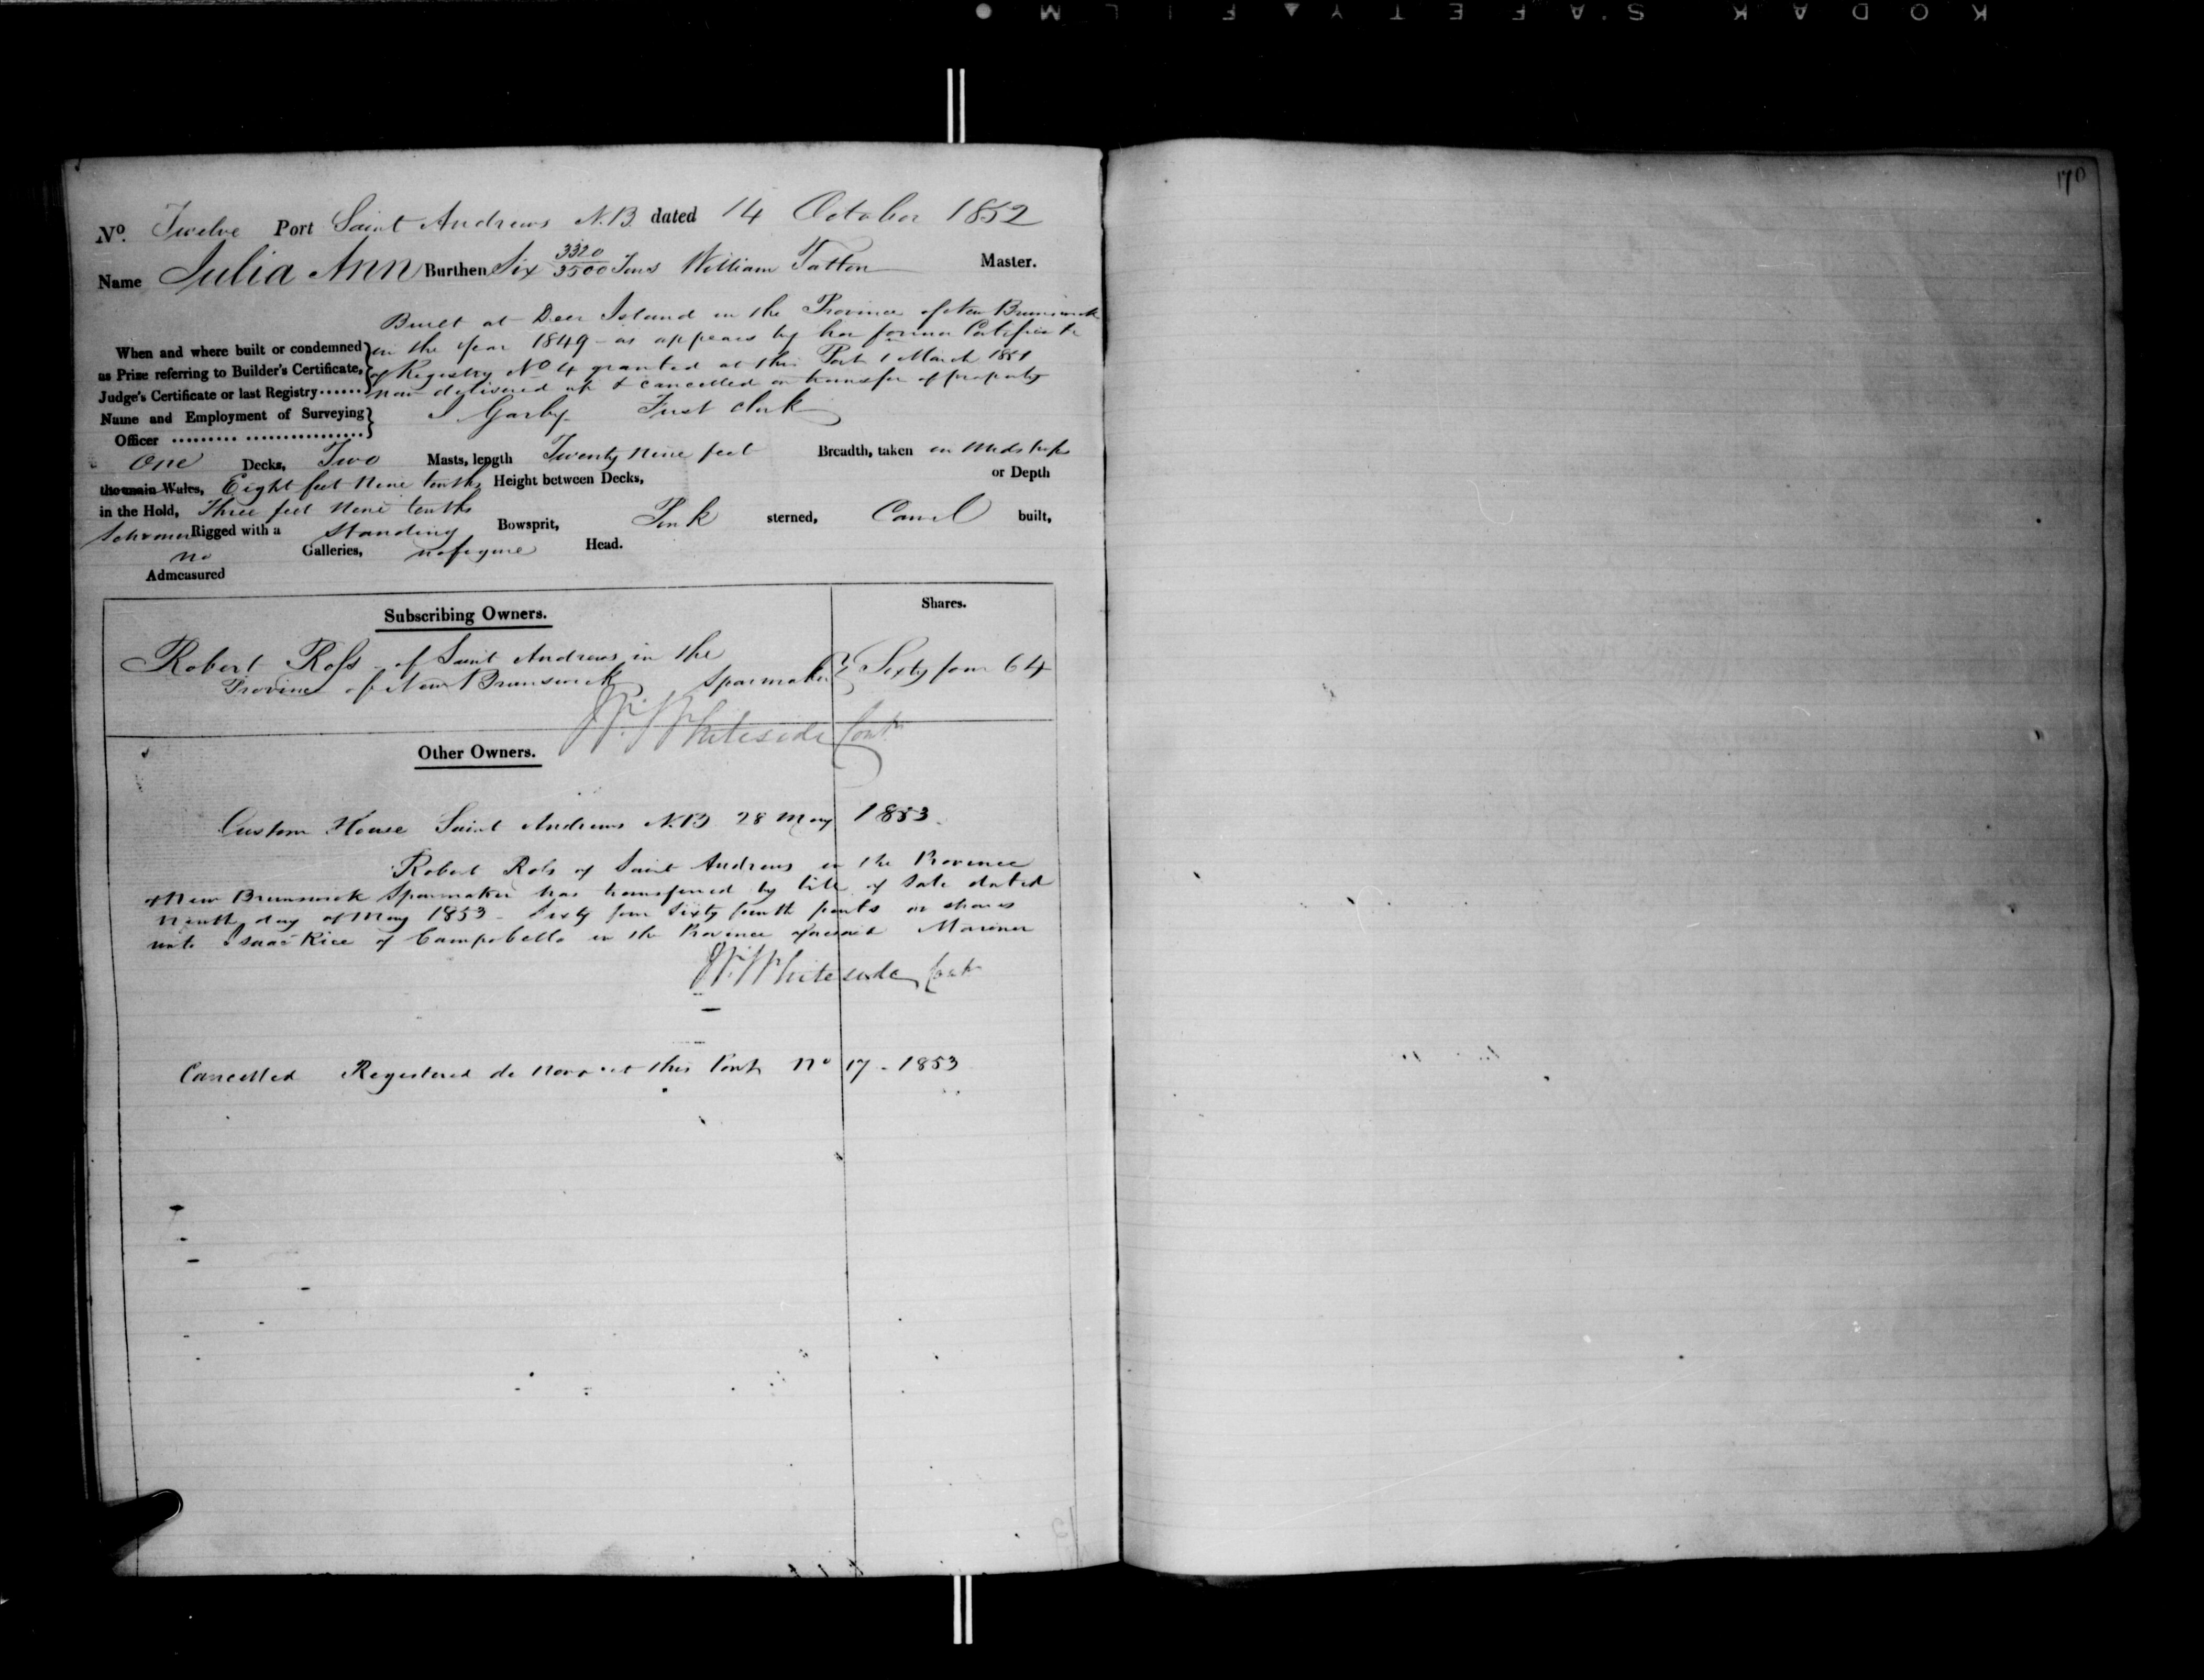 KODAK SAFETY FILM
170
No. Twelve Port Saint Andrews N.B. dated 14 October 1852
Name Julia Ann Burthen Six 3320/3500 Tons William Tatton Master.
Built at Deer Island in the Province of New Brunswick
When and where built or condemned in the year 1849 - as appears by her former Certificate
as Prize referring to Builder's Certificate, of Registry No 4 granted at this Port 1 March 1851
Judge's Certificate or last Registry now delivered up & cancelled on transfer of property
Name and Employment of Surveying Officer J Garby First Clerk
One Decks, Two Masts, length Twenty nine feet Breadth, taken in Midships
the main Wales, Eight feet Nine tenths Height between Decks, or Depth
in the Hold, Three feet Nine tenths
Schooner Rigged with a Standing Bowsprit, Pink sterned, Carvel built,
no Galleries, no figure Head.
Admeasured
Subscribing Owners. Shares.
Robert Ross of Saint Andrews in the
Province of New Brunswick Sparmaker Sixty four 64
Whiteside Contr
Other Owners.
Custom House Saint Andrews N.B. 28 May 1853.
Robert Ross of Saint Andrews in the Province
of New Brunswick Sparmaker has transferred by bill of Sale dated
Ninth day of May 1853 - Sixty four Sixty fourth parts or shares
unto Isaac Rice of Campobello in the Province aforesaid Mariner
Whiteside Contr
Cancelled Registered de Novo at this Port No 17 - 1853